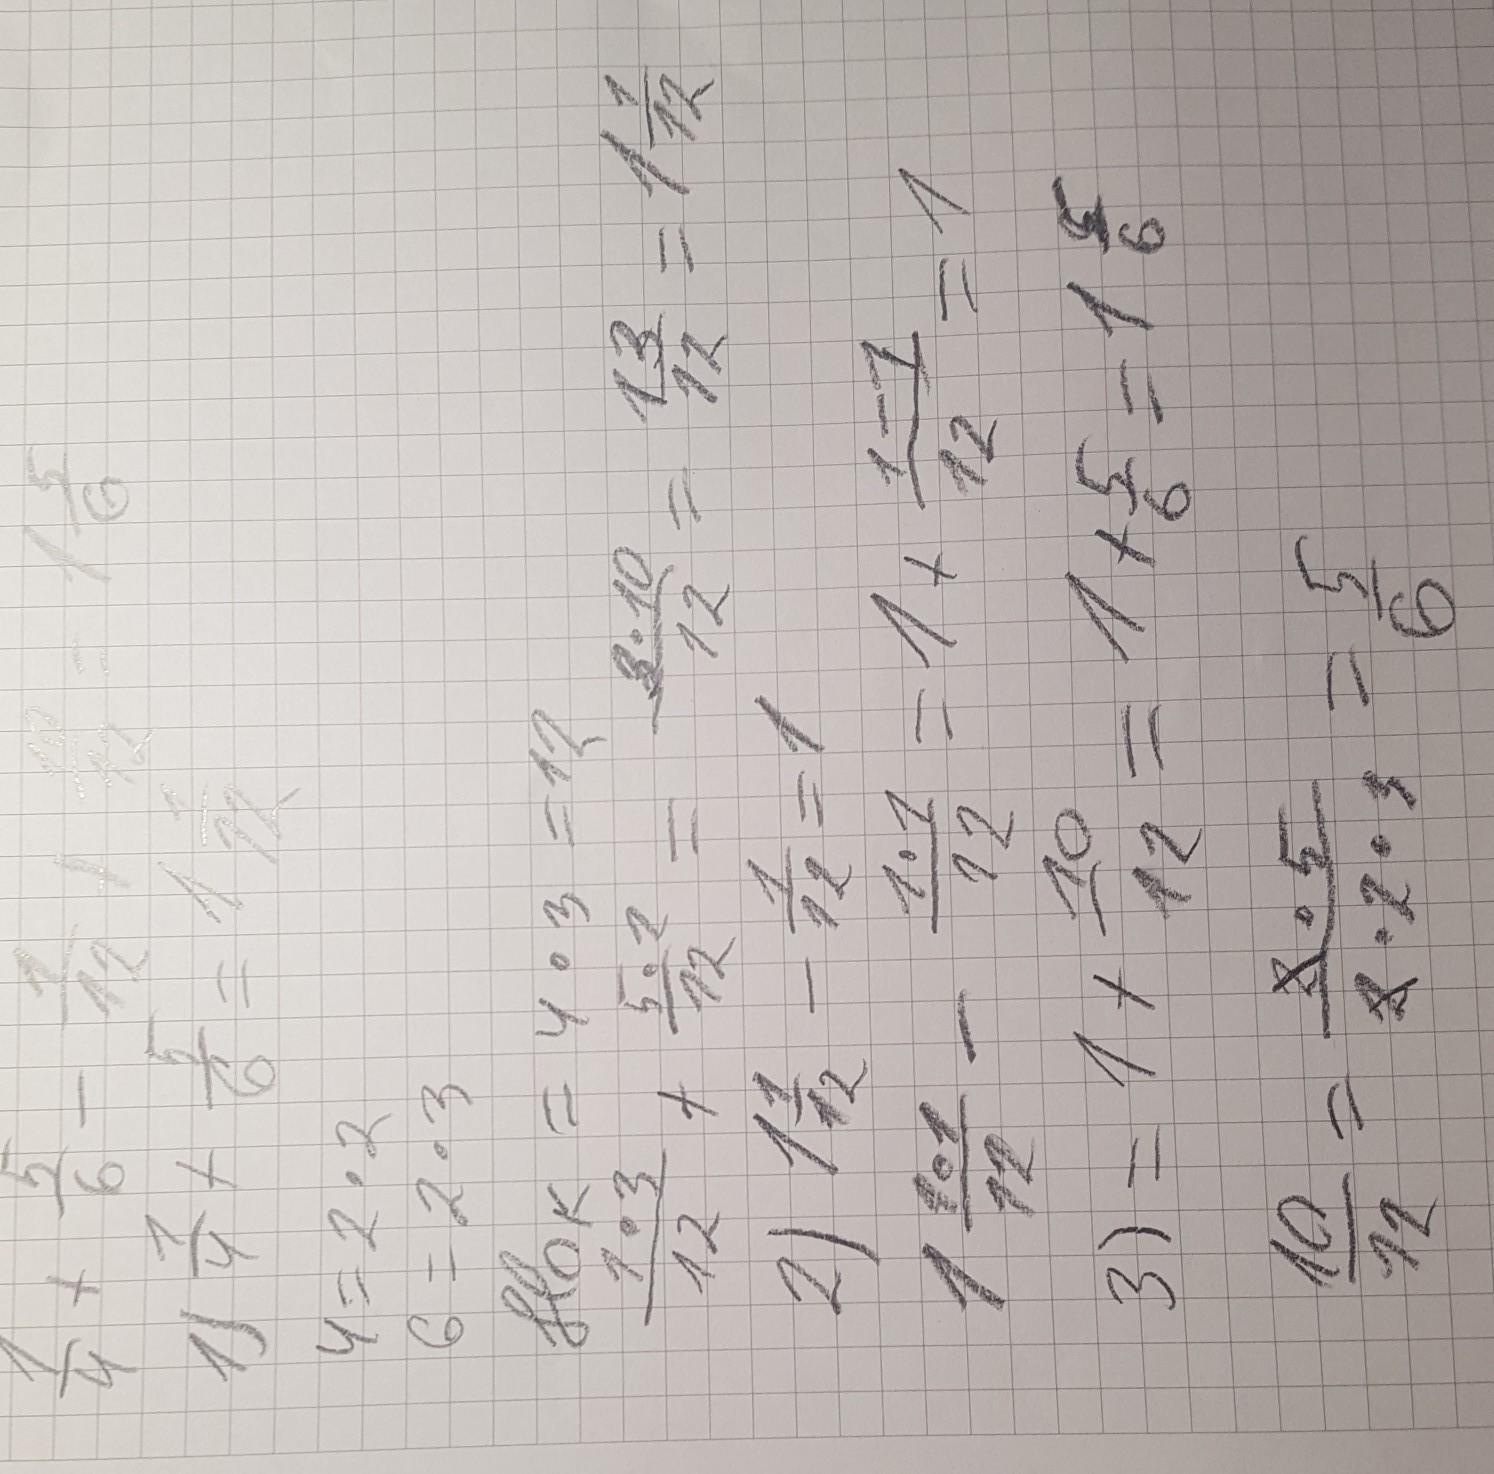 1/4 + 5/6 - 1/12 + 10/12 = 1 5/6
1) 1/4 + 5/6 = 1 1/12
4 = 2 · 2
6 = 2 · 3
НОК = 4 · 3 = 12
1·3/12 + 5·2/12 = 3·10/12 = 13/12 = 1 1/12
2) 1 1/12 - 1/12 = 1
1 1·1/12 - 1·1/12 = 1 + 1-1/12 = 1
3) = 1 + 10/12 = 1 + 5/6 = 1 5/6
10/12 = 2·5/2·2·3 = 5/6